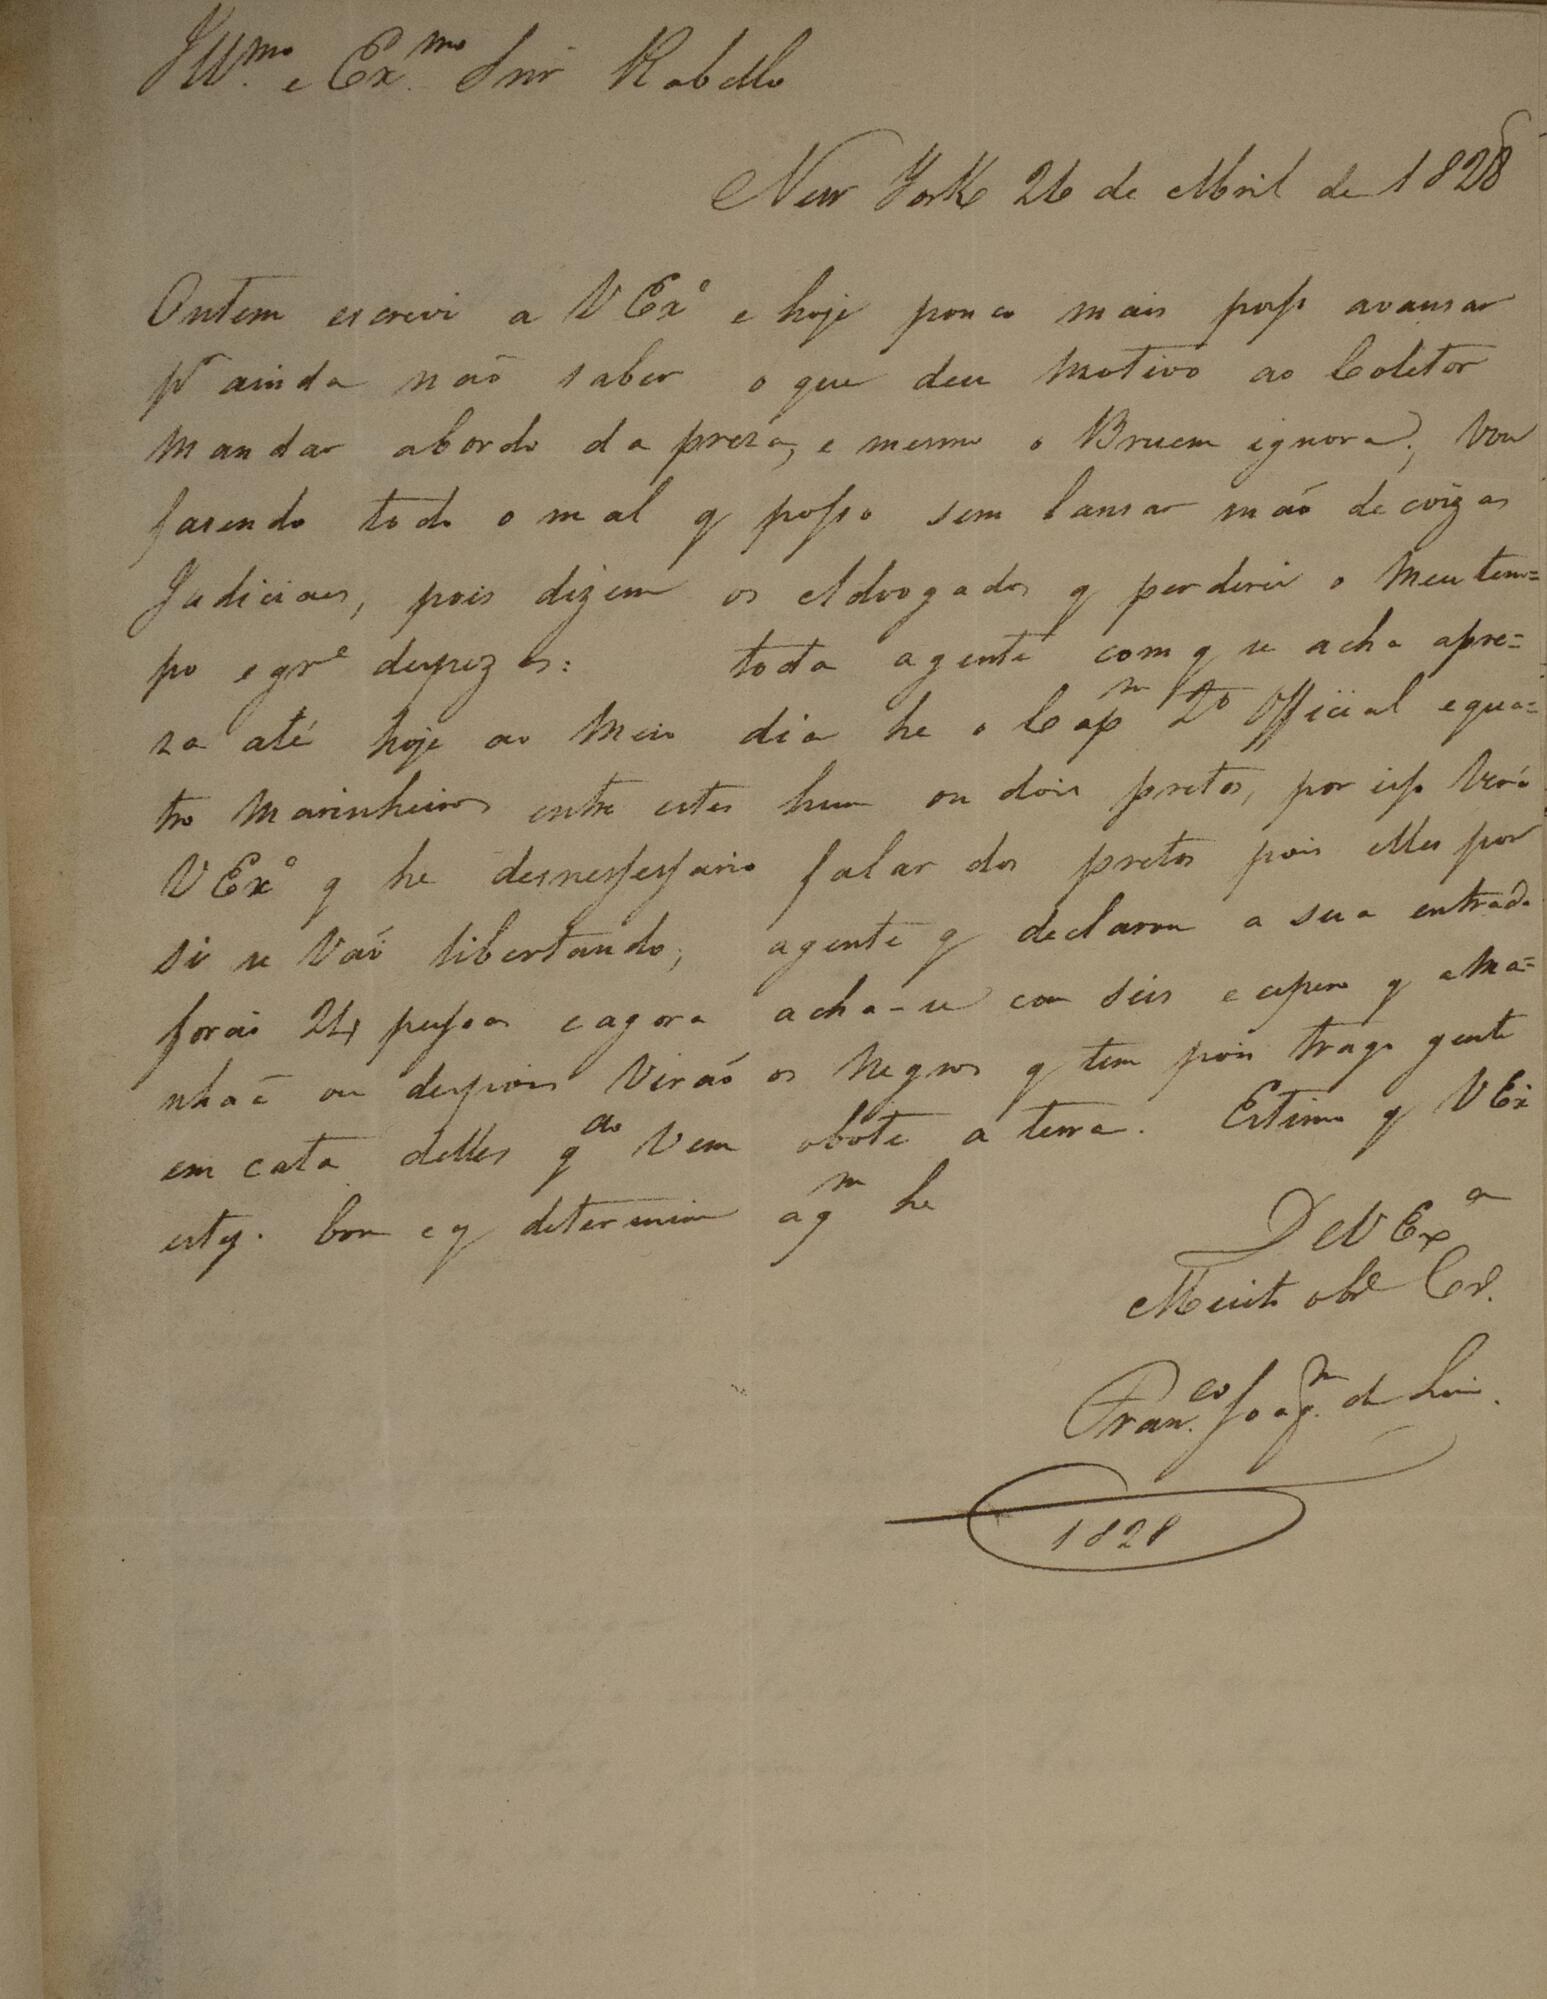 Illmo. e Exmo. Snr Rabello
New York 26 de Abril de 1828
Ontem escrevi a V Exa e hoje pouco mais posso avansar
pr ainda não saber o que deu motivo ao Coletor
mandar abordo da preza, e mesmo o Bruem ignora; vou
fasendo todo o mal q posso sem lansar mão de coizas
Judiciaes, pois dizem os Advogados q perderei o meu tem=
po e gre despezas: toda agente com q se acha apre=
za até hoje ao meio dia he o Capm 2o Official e qua=
tro marinheiros entre estes hum ou dois pretos, por isso verá
V Exa q he desnessessario falar dos pretos pois elles por
si se vão libertando; agente q declarou a sua entrada
forão 24 pessoas e agora acha-se com seis e espero q ama=
nhaã ou despois virão os negros q tem pois trago gente
em cata delles qdo vem obote a terra. Estimo q V Ex
esteja bom e q determine a qm he
De V Exa
Muito obro Cro.
Franco. Joaqm. de Lima.
1828